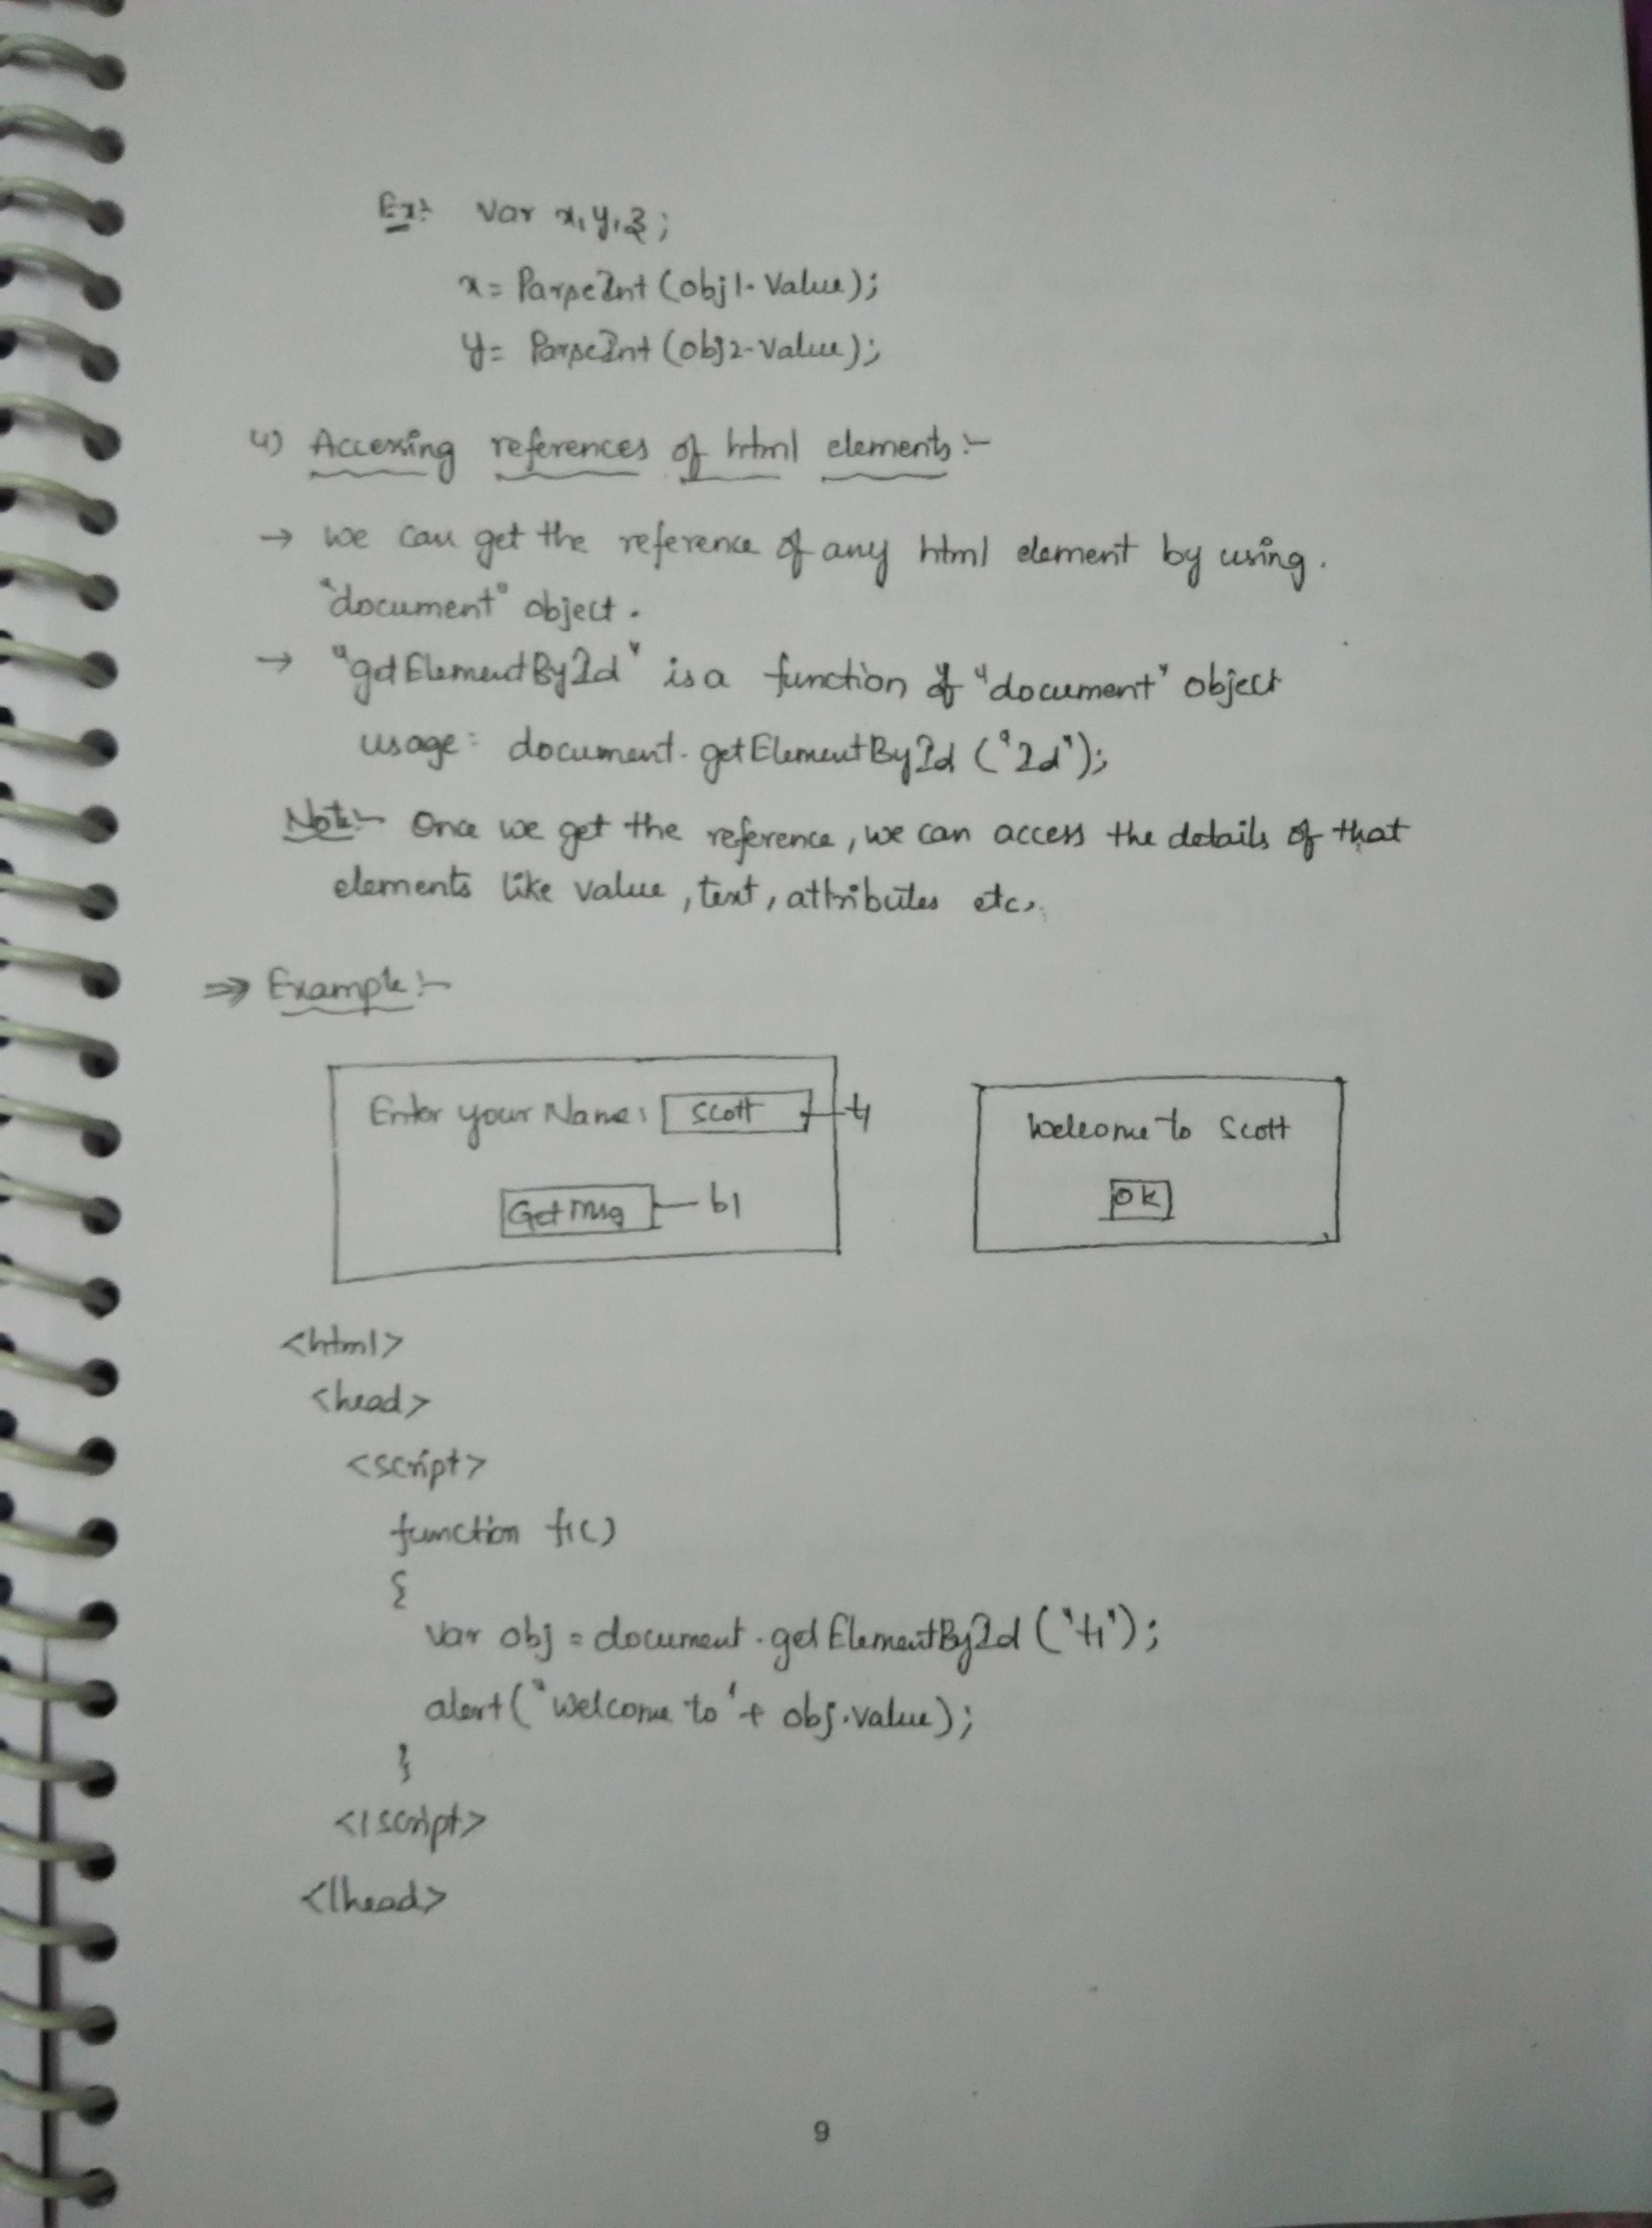 Ex:- var x, y, z;
x = ParseInt (obj1.Value);
y = ParseInt (obj2.Value);
4) Accessing references of html elements :-
→ we can get the reference of any html element by using.
"document" object.
→ "getElementById" is a function of "document" object
usage: document.getElementById ("Id");
Note:- Once we get the reference, we can access the details of that
elements like value, text, attributes etc.
⇒ Example:-
Enter your Name: Scott t1
Get msg b1
Welcome to Scott
OK
<html>
<head>
<script>
function f1()
{
var obj = document.getElementById ("t1");
alert("Welcome to" + obj.value);
}
</script>
</head>
9